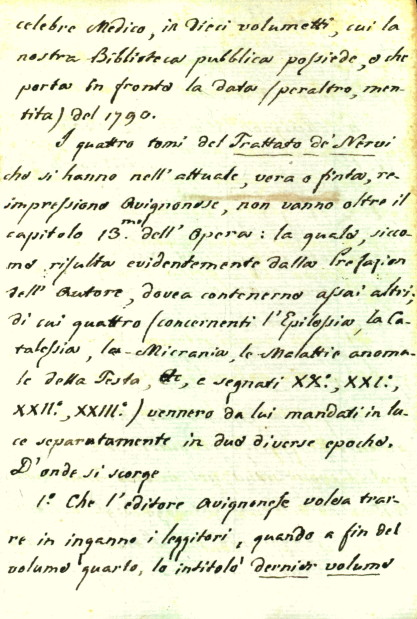 celebre Medico, in Dieci volumetti, cui la
nostra Biblioteca pubblica possiede, o che
porta in fronte la data (peraltro, men-
tita) del 1790.
I quattro tomi del Trattato de' Nervi
che si hanno nell'attuale, vera o finta, re-
impressione Avignonese, non vanno oltre il
capitolo 13.mo dell'Opera: la quale, sicco-
me risulta evidentemente dalla Prefazion
dell'Autore, dovea contenerne assai altri,
di cui quattro (concernenti l'Epilessia, la Ca-
talessia, la Micrania, le Malattie anoma-
le della Testa, &c, e segnati XX.°, XXI.°,
XXII.°, XXIII.°) vennero da lui mandati in lu-
ce separatamente in due diverse epoche.
D'onde si scorge
1.° Che l'editore Avignonese volea trar-
re in inganno i leggitori, quando a fin del
volume quarto, lo intitolò dernier volume